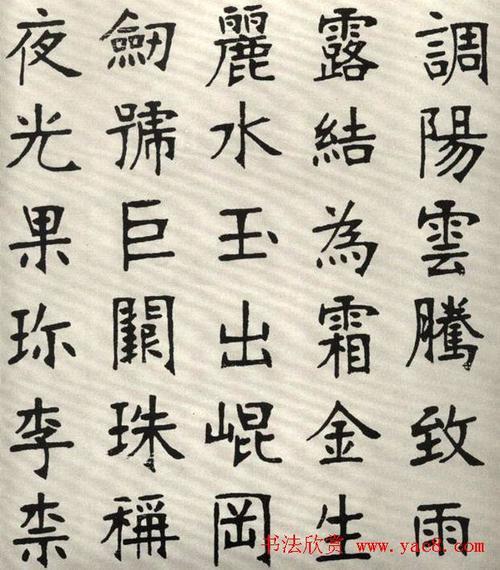 調陽雲騰致雨
露結為霜金生
麗水玉出崐岡
劒號巨闕珠稱
夜光果珎李柰
书法欣赏 www.yac8.com